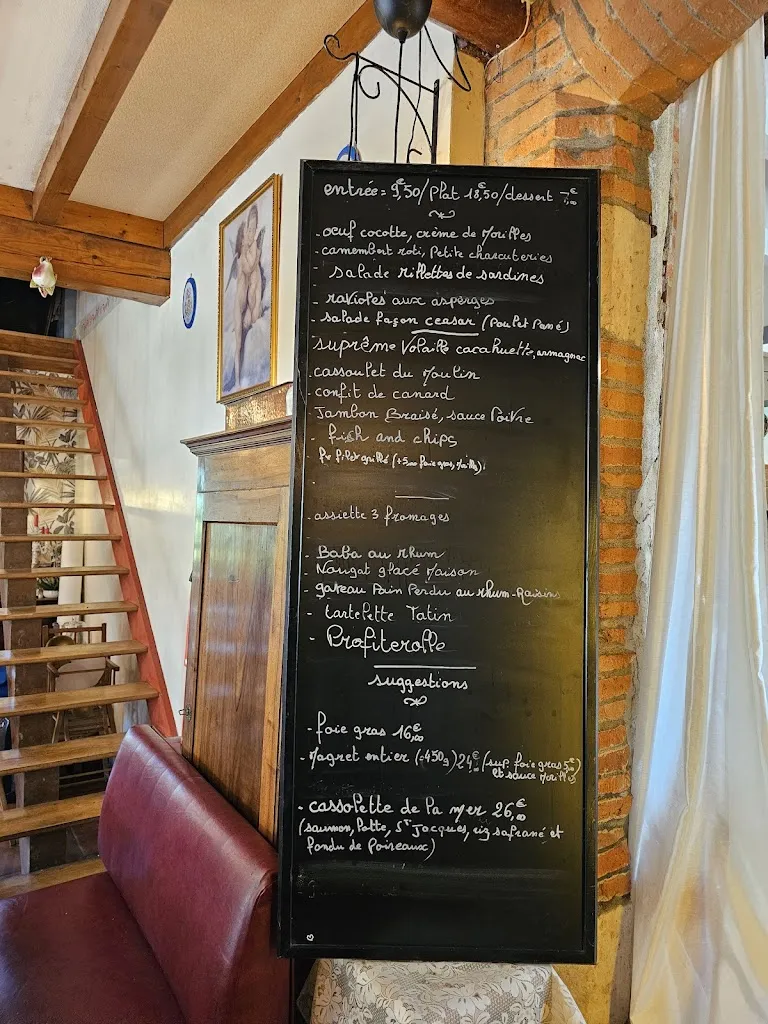 entrée = 9,€50 / plat 18,€50 / dessert 7,€00
- oeuf cocotte, crème de Morilles
- camembert roti, Petite charcuteries
- salade rillettes de sardines
- ravioles aux asperges
- salade façon ceasar (Poulet Pané)
- suprême Volaille cacahuette, armagnac
- cassoulet du Moulin
- confit de canard
- Jambon Braisé, sauce Poivre
- fish and chips
filet grillé (+5,00 foie gras, Morilles)
- assiette 3 fromages
- Baba au rhum
- Nougat glacé Maison
- gateau Pain Perdu au rhum-Raisins
- tartelette Tatin
- Profiterolle
suggestions
- foie gras 16,€00
- Magret entier (±450g) 24,€ (sup. foie gras 5,€00
et sauce Morilles)
- cassolette de la mer 26,€00
(saumon, Lotte, St Jacques, riz safrané et
fondu de Poireaux)